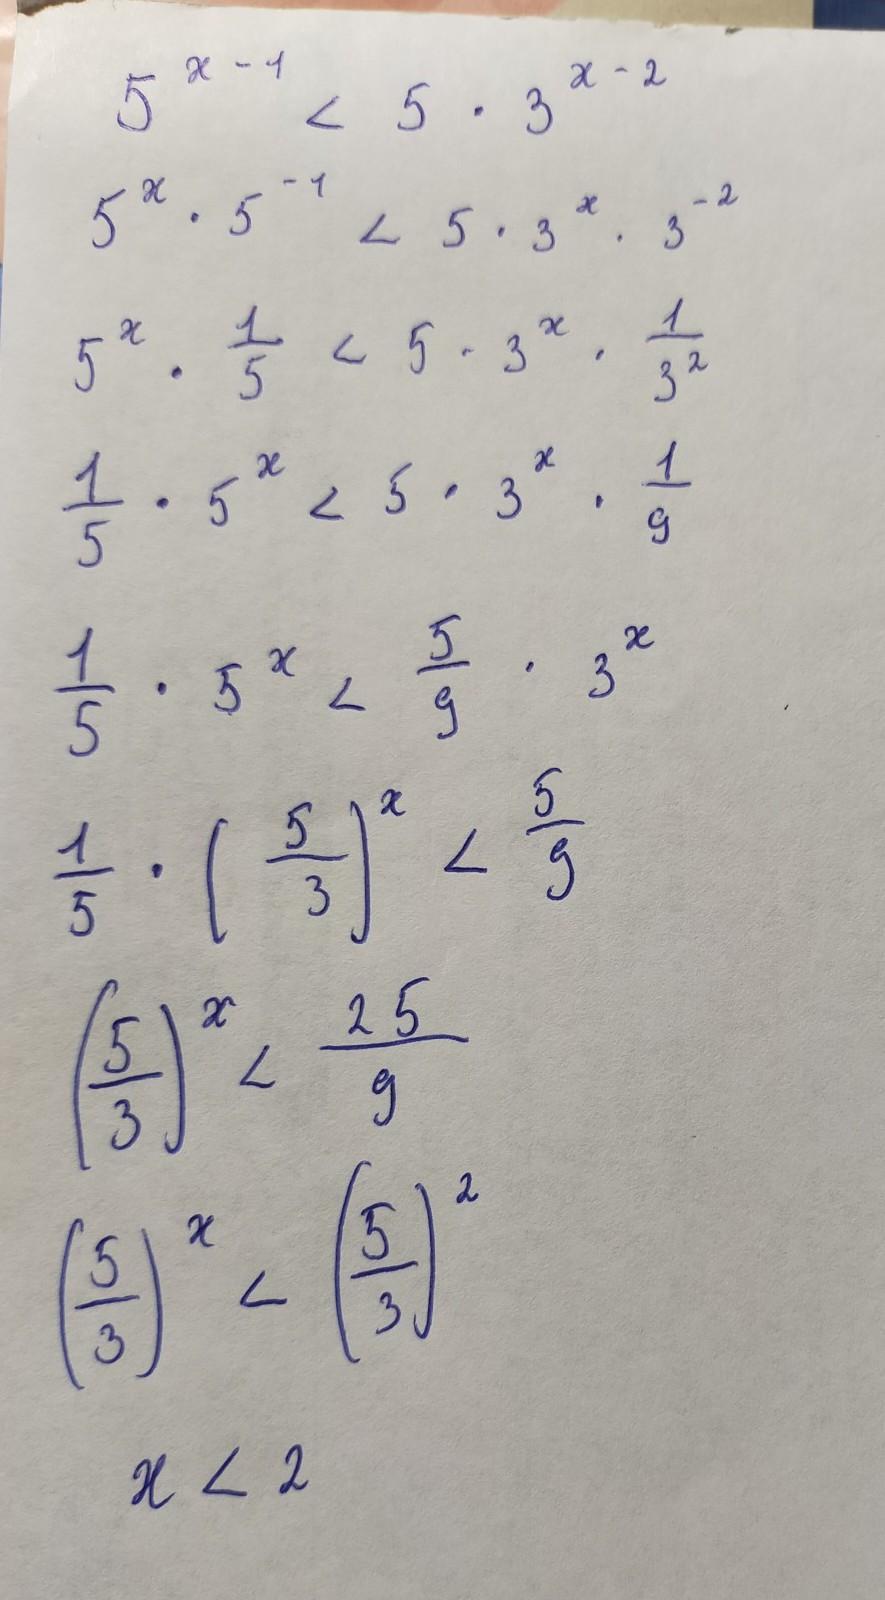 5^{x-1} < 5 · 3^{x-2}
5^x · 5^{-1} < 5 · 3^x · 3^{-2}
5^x · \frac{1}{5} < 5 · 3^x · \frac{1}{3^2}
\frac{1}{5} · 5^x < 5 · 3^x · \frac{1}{9}
\frac{1}{5} · 5^x < \frac{5}{9} · 3^x
\frac{1}{5} · (\frac{5}{3})^x < \frac{5}{9}
(\frac{5}{3})^x < \frac{25}{9}
(\frac{5}{3})^x < (\frac{5}{3})^2
x < 2